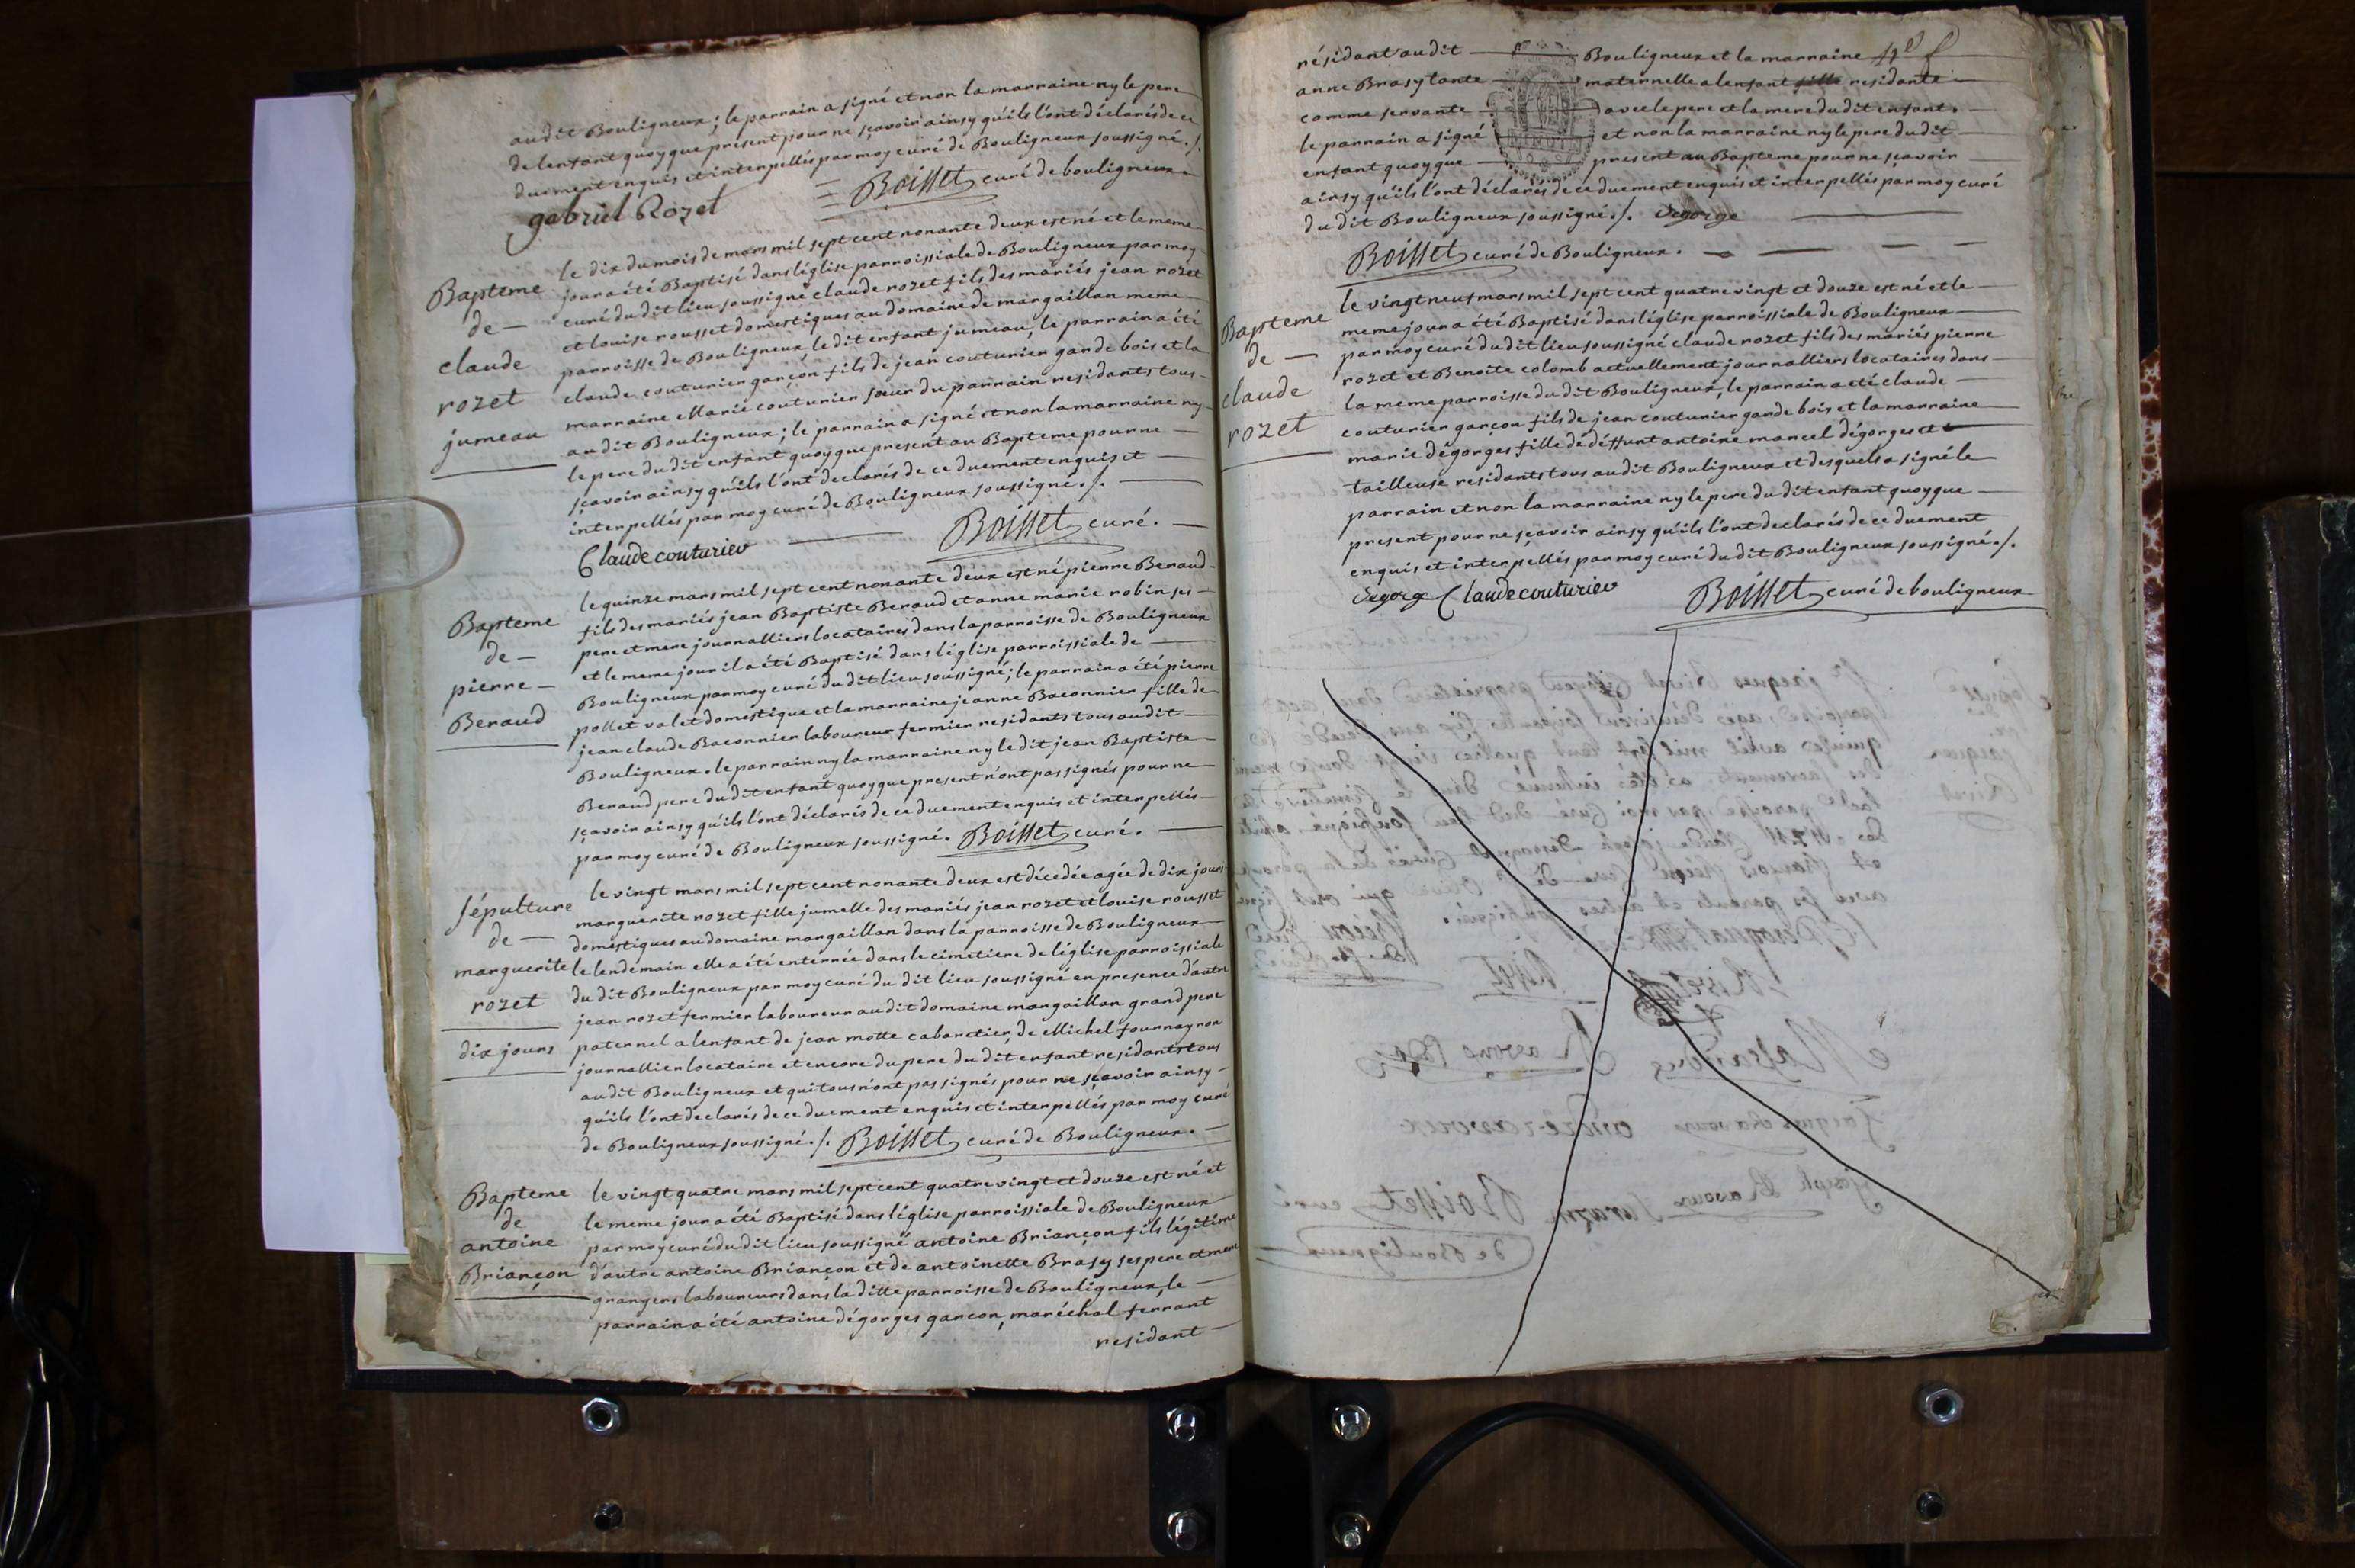 audit Bouligneux; le parrain a signé et non la marraine ny le pere
de lenfant quoyque présent pour ne sçavoir ainsy quils l'ont déclarés de ce
duement enquis et interpellés par moy curé de Bouligneux soussigné ./.
gabriel Rozet
Boisset curé de bouligneux.
Bapteme
de —
claude
rozet
jumeau
le dix du mois de mars mil sept cent nonante deux est né et le meme
jour a été Baptisé dans l'église parroissiale de Bouligneux par moy
curé du dit lieu soussigné claude rozet fils des mariés jean rozet
et louise rousset domestiques au domaine de margaillan meme
parroisse de Bouligneux le dit enfant jumeau, le parrain a été
claude couturier garçon fils de jean couturier garde bois et la
marraine Marie couturier sœur du parrain residants tous
au dit Bouligneux; le parrain a signé et non la marraine ny
le pere du dit enfant quoyque present au Bapteme pour ne
sçavoir ainsy qu'ils l'ont declarés de ce duement enquis et
interpellés par moy curé de Bouligneux soussigné ./.
Claude couturier
Boisset curé.
Bapteme
de —
pierre —
Beraud
le quinze mars mil sept cent nonante deux est né pierre Beraud
fils des mariés jean Baptiste Beraud et anne marie robin ses
pere et mere journalliers locataires dans la parroisse de Bouligneux
et le meme jour il a été Baptisé dans l'église parroissiale de
Bouligneux par moy curé du dit lieu soussigné; le parrain a été pierre
pollet valet domestique et la marraine jeanne Baconnier fille de
jean claude Baconnier laboureur fermier residants tous au dit
Bouligneux. le parrain ny la marraine ny le dit jean Baptiste
Beraud pere du dit enfant quoyque present n'ont pas signés pour ne
sçavoir ainsy qu'ils l'ont déclarés de ce duement enquis et interpellés
par moy curé de Bouligneux soussigné. Boisset curé.
sépulture
de —
marguerite
rozet
dix jours
le vingt mars mil sept cent nonante deux est décedée agée de dix jours
marguerite rozet fille jumelle des mariés jean rozet et louise rousset
domestiques au domaine margaillan dans la parroisse de Bouligneux
le lendemain elle a été enterrée dans le cimetiere de l'église parroissiale
du dit Bouligneux par moy curé du dit lieu soussigné en presence d'autre
jean rozet fermier laboureur au dit domaine margaillan grand pere
paternel a lenfant de jean motte cabaretier, de Michel fournayron
journallier locataire et encore du pere du dit enfant residants tous
au dit Bouligneux et qui tous n'ont pas signés pour ne sçavoir ainsy
qu'ils l'ont déclarés de ce duement enquis et interpellés par moy curé
de Bouligneux soussigné ./. Boisset curé de Bouligneux.
Bapteme
de
antoine
Briançon
le vingt quatre mars mil sept cent quatre vingt et douze est né et
le meme jour a été Baptisé dans l'église parroissiale de Bouligneux
par moy curé du dit lieu soussigné antoine Briançon fils légitime
d'autre antoine Briançon et de antoinette Brasy ses pere et mere
grangers laboureurs dans la ditte parroisse de Bouligneux, le
parrain a été antoine dégorges garçon, maréchal ferrant
residant
résidant au dit Bouligneux et la marraine
anne Brasy tante maternelle a lenfant residante
comme servante avec le pere et la mere du dit enfant.
le parrain a signé et non la marraine ny le pere du dit
enfant quoyque present au Bapteme pour ne sçavoir
ainsy qu'ils l'ont déclarés de ce duement enquis et interpellés par moy curé
du dit Bouligneux soussigné ./. degorge
Boisset curé de Bouligneux.
Bapteme
de —
claude
rozet
le vingt neuf mars mil sept cent quatre vingt et douze est né et le
meme jour a été Baptisé dans l'église parroissiale de Bouligneux
par moy curé du dit lieu soussigné claude rozet fils des mariés pierre
rozet et Benoite colomb actuellement journalliers locataires dans
la meme parroisse du dit Bouligneux, le parrain a été claude
couturier garçon fils de jean couturier garde bois et la marraine
marie dégorges fille de déffunt antoine marcel dégorges et
tailleuse residants tous au dit Bouligneux et desquels a signé le
parrain et non la marraine ny le pere du dit enfant quoyque
present pour ne sçavoir ainsy qu'ils l'ont declarés de ce duement
enquis et interpellés par moy curé du dit Bouligneux soussigné ./.
degorge Claude couturier
Boisset curé de bouligneux